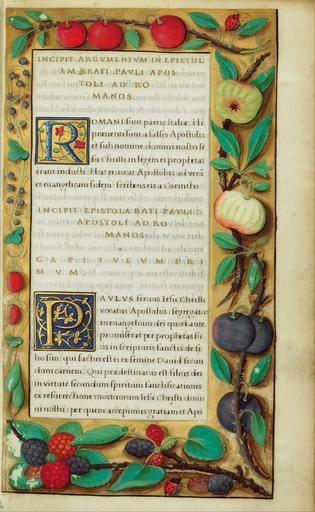 INCIPIT ARGVMENTVM IN EPISTOL
AM BEATI PAVLI APOS
TOLI AD RO
MANOS.
ROMANI sunt partis Italiæ. Hi
præuenti sunt a falsis Apostolis
et sub nomine domini nostri Ie
su Christi in legem et prophetas
erant inducti. Hos reuocat Apostolus ad verã
et euangelicam fidem scribens eis a Corintho.
INCIPIT EPISTOLA BATI PAVLI
APOSTOLI AD RO
MANOS.
CAPTVLVM PRI
MVM.
PAVLVS seruus Iesu Christi
vocatus Apostolus segregatus
in euangelium dei quod ante
promiserat per prophetas su
os in scripturis sanctis de fi
lio suo, qui factus est ei ex semine Dauid secun
dum carnem. Qui prædestinatus est filius dei
in virtute secundum spiritum sanctificationis
ex resurrectione mortuorum Iesu Christi domi
ni nostri: per quem accepimus gratiam et Apo